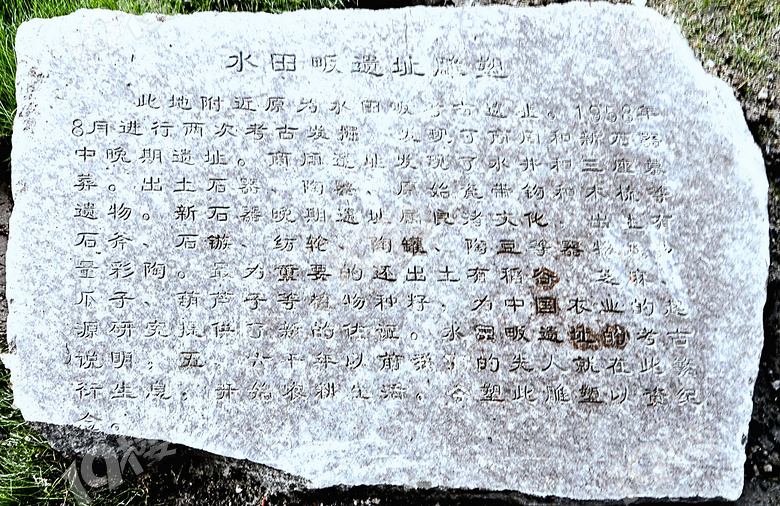 水田畈遗址雕塑
此地附近原为水田畈考古遗址。1958年
8月进行两次考古发掘，发现了商周和新石器
中晚期遗址。商周遗址发现了水井和三座墓
葬。出土石器、陶器、原始瓷带钩和木梳等
遗物。新石器晚期遗址属良渚文化，出土有
石斧、石镞、纺轮、陶罐、陶豆等器物及少
量彩陶。最为重要的还出土有稻谷、芝麻、
瓜子、葫芦子等植物种籽，为中国农业的起
源研究提供了新的佐证。水田畈遗址的考古
说明，五、六千年以前 的先人就在此繁
衍生息，开始农耕生活。今塑此雕塑以资纪
念。
19楼